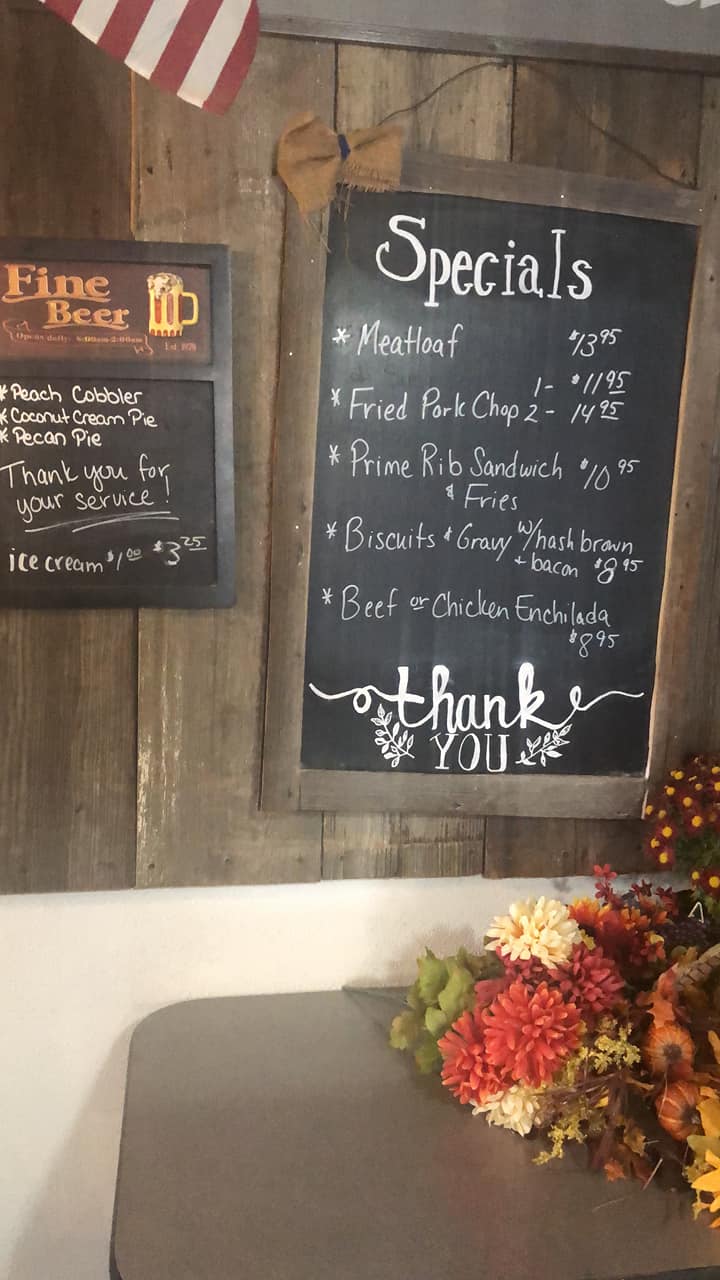 Fine
Beer
Opens daily 8:00am-2:00am
Est. 1979
* Peach Cobbler
* Coconut Cream Pie
* Pecan Pie
Thank you for
your service!
ice cream $1.00 $3.25
Specials
* Meatloaf $13.95
* Fried Pork Chop 1- $11.95
2- 14.95
* Prime Rib Sandwich $10.95
& Fries
* Biscuits & Gravy w/hash brown
+ bacon $8.95
* Beef or Chicken Enchilada
$8.95
thank
YOU